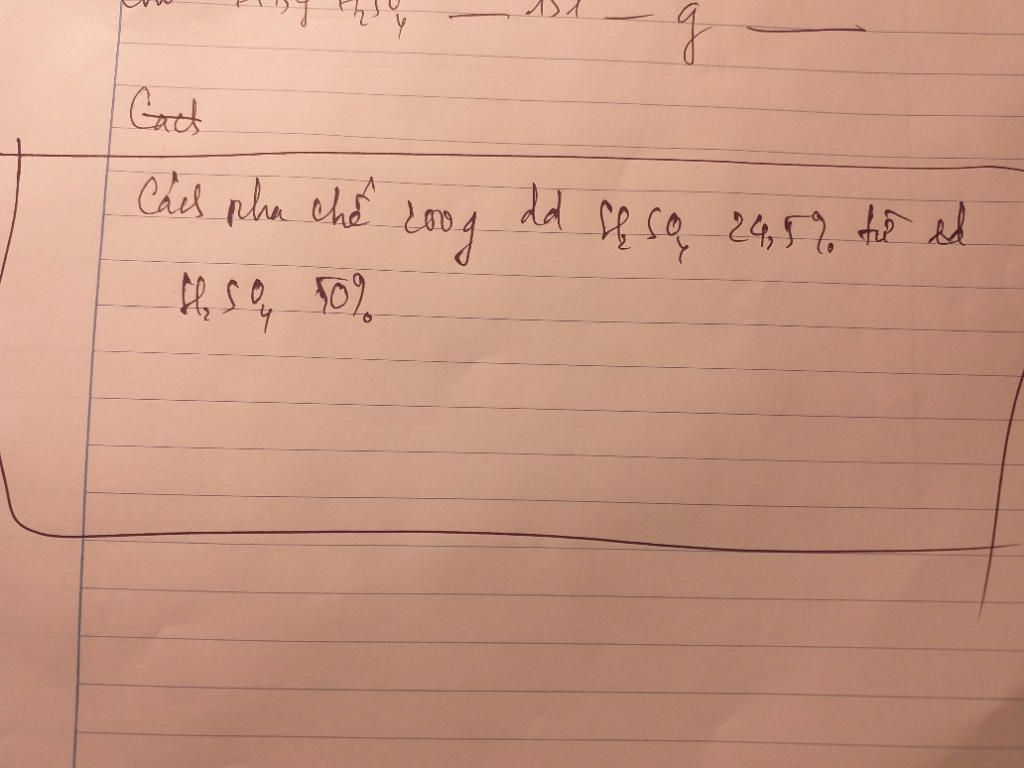 H₂SO₄ — 151 — g —
Cách
Cách pha chế 200g dd H₂SO₄ 24,5% từ dd
H₂SO₄ 50%